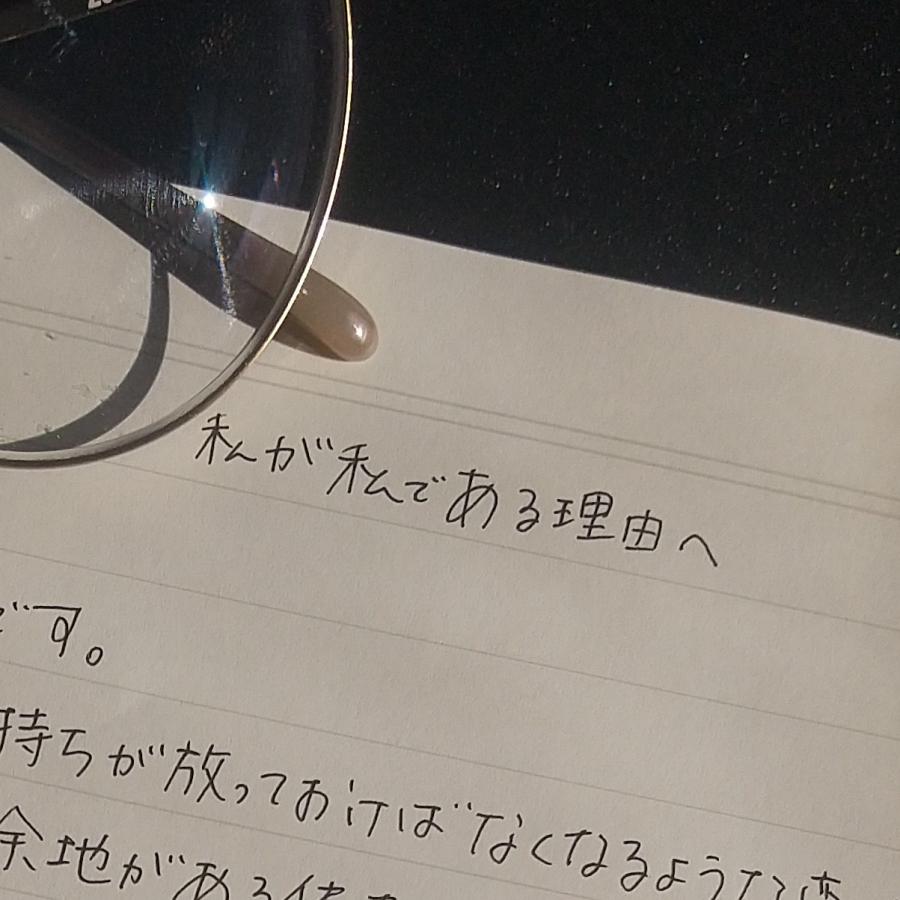 私が私である理由へ
です。
持ちが放っておけばなくなるような恋
余地がある